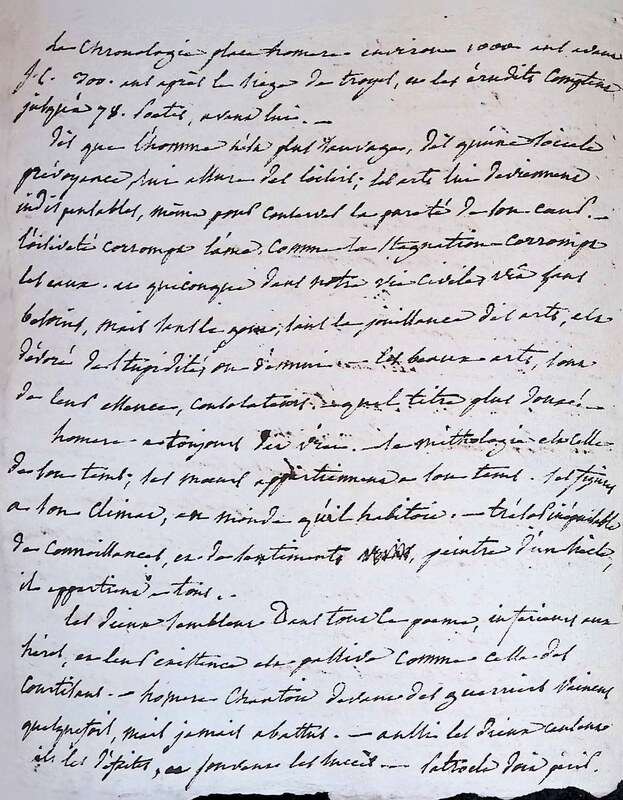 La Chronologie place homere environ 1000 ans avant
J.C. 300. ans après le siege de troyes, et les érudits Comptent
jusqu'à 78. Poetes, avant lui. —
Dès que l'homme n'est plus sauvage, dès qu'une sociale
prévoyance lui assure des loisirs; les arts lui deviennent
indispensables, même pour conserver la pureté de son cœur. —
l'oisiveté corrompt l'ame, comme la stagnation corrompt
les eaux. et quiconque dans notre vie civile, vit sans
besoins, mais sans le gout, sans la jouissance des arts, est
dévoré de stupidité, ou d'ennui. — les beaux arts, sont
de leur essence, consolateurs. — quel titre plus doux! —
homere a toujours dit vrai. — la mithologie est celle
de son tems; les mœurs appartiennent a son tems. les figures
a son climat, et monde qu'il habitoit. — trésor inépuisable
de connoissances, et de sentiments, peintre d'un siècle,
il appartient a tous. —
les dieux semblent dans tout le poeme, inférieurs aux
héros, et leur existence est passive comme celle des
Courtisans. — homere chantoit devant des guerriers vaincus
quelquefois, mais jamais abattus. — aussi les dieux
ils les défaites, et jamais les succès. — Patrocle doit périr.